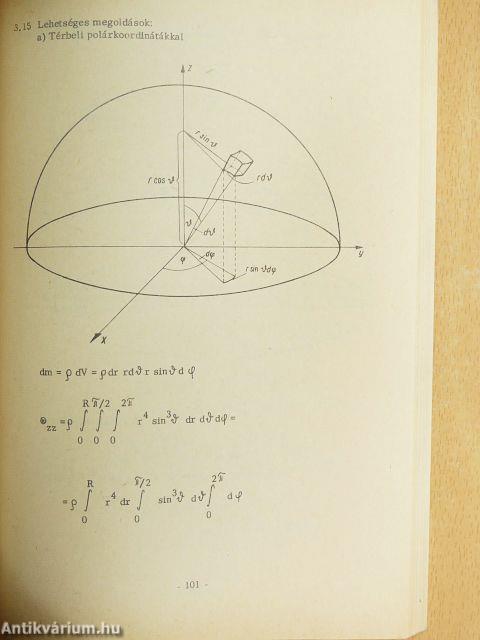 3.15 Lehetséges megoldások:
a) Térbeli polárkoordinátákkal
z
r sin ϑ
r cos ϑ
r dϑ
ϑ
dϑ
dφ
φ
r sin ϑ dφ
y
x
dm = ρ dV = ρ dr r dϑ r sin ϑ d φ
R π/2 2π
Θzz = ρ ∫ ∫ ∫ r⁴ sin³ϑ dr dϑ dφ =
0 0 0
R π/2 2π
= ρ ∫ r⁴ dr ∫ sin³ϑ dϑ ∫ d φ
0 0 0
- 101 -
Antikvárium.hu